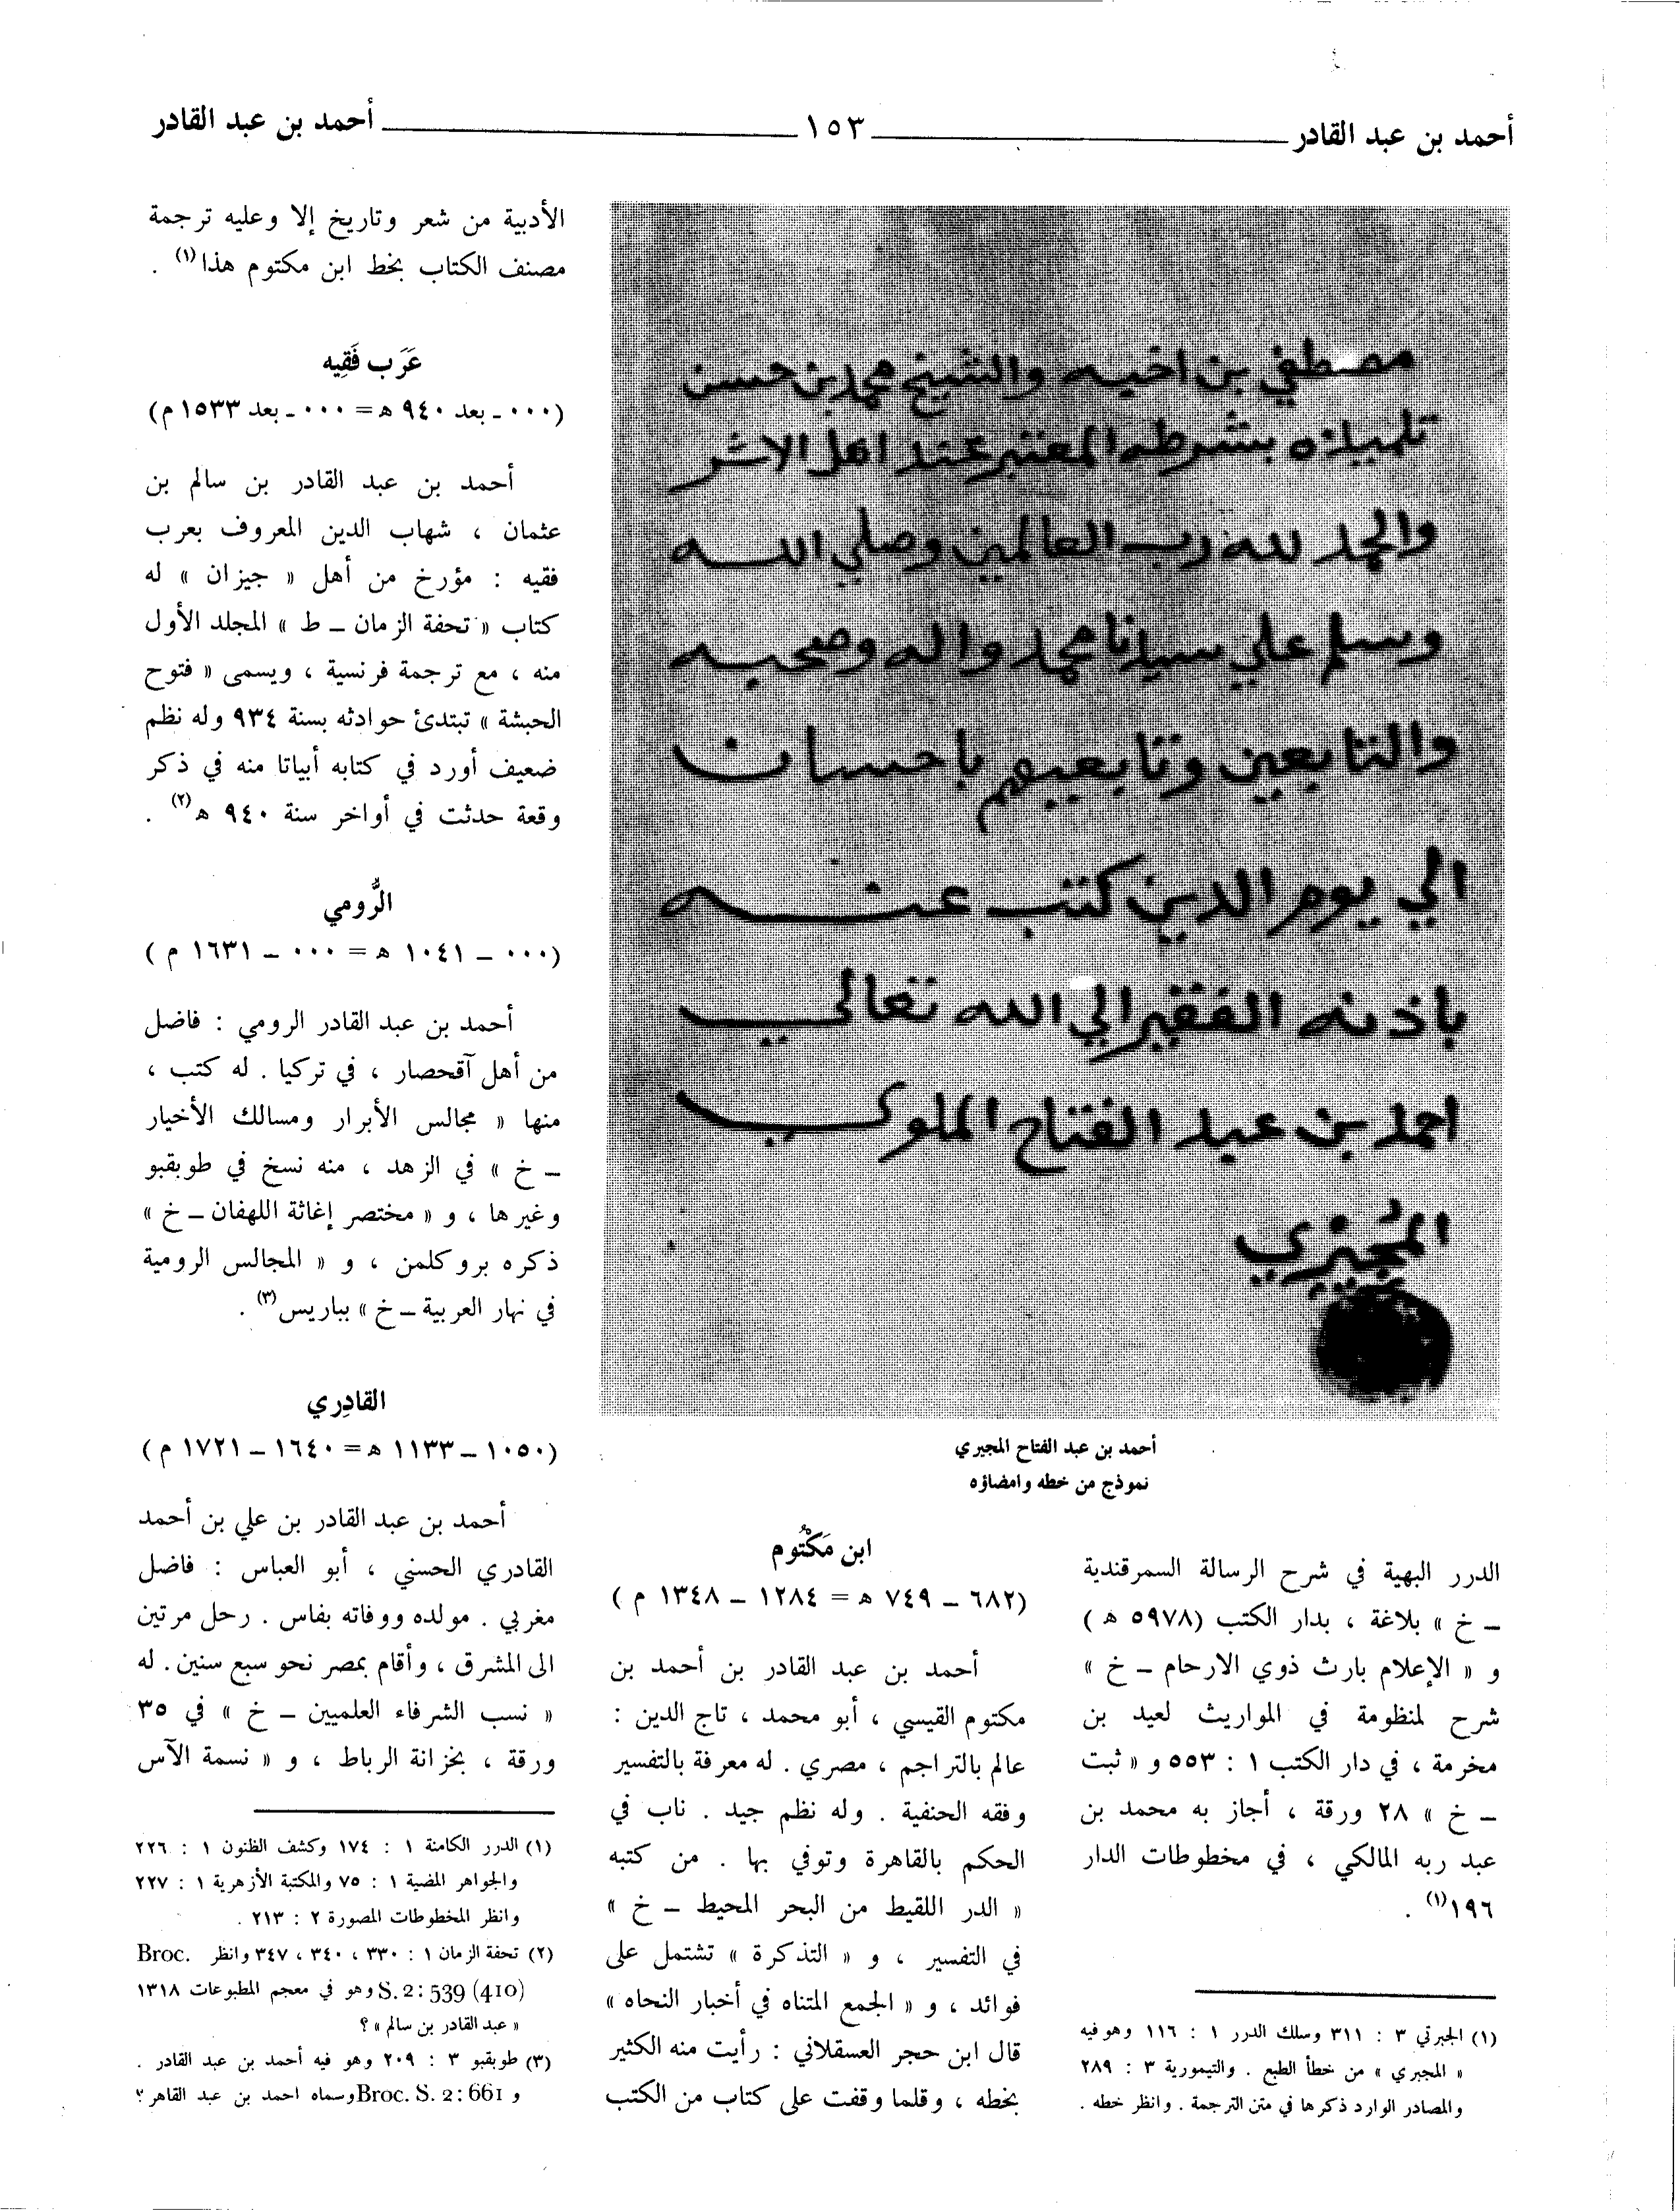 أحمد بن عبد القادر
١٥٣
أحمد بن عبد القادر
مصطفي بن اخيه والشيخ محمد بن حسن
تلميذه بشرطه المعتبر عند اهل الاثر
والحمد لله رب العالمين وصلي الله
وسلم علي سيدنا محمد واله وصحبه
والتابعين وتابعيهم باحسان
الي يوم الدين كتب عنه
باذنه الفقير الي الله تعالي
احمد بن عبد الفتاح الملوي
المُجيزي
أحمد بن عبد الفتاح المجيري
نموذج من خطه وامضاؤه
الدرر البهية في شرح الرسالة السمرقندية
ــ خ » بلاغة ، بدار الكتب (٥٩٧٨ ه )
و « الإعلام بارث ذوي الارحام ــ خ »
شرح لمنظومة في المواريث لعيد بن
مخرمة ، في دار الكتب ١ : ٥٥٣ و « ثبت
ــ خ » ٢٨ ورقة ، أجاز به محمد بن
عبد ربه المالكي ، في مخطوطات الدار
١٩٦(١) .
(١) الجبرتي ٣ : ٣١١ وسلك الدرر ١ : ١١٦ وهو فيه
« المجبري » من خطأ الطبع . والتيمورية ٣ : ٢٨٩
والمصادر الوارد ذكرها في متن الترجمة . وانظر خطه .
ابن مَكْتُوم
(٦٨٢ ــ ٧٤٩ ه = ١٢٨٤ ــ ١٣٤٨ م )
أحمد بن عبد القادر بن أحمد بن
مكتوم القيسي ، أبو محمد ، تاج الدين :
عالم بالتراجم ، مصري . له معرفة بالتفسير
وفقه الحنفية . وله نظم جيد . ناب في
الحكم بالقاهرة وتوفي بها . من كتبه
« الدر اللقيط من البحر المحيط ــ خ »
في التفسير ، و « التذكرة » تشتمل على
فوائد ، و « الجمع المتناه في أخبار النحاه »
قال ابن حجر العسقلاني : رأيت منه الكثير
بخطه ، وقلما وقفت على كتاب من الكتب
الأدبية من شعر وتاريخ إلا وعليه ترجمة
مصنف الكتاب بخط ابن مكتوم هذا(١) .
عَرَب فَقِيه
(٠٠٠ ـ بعد ٩٤٠ ه = ٠٠٠ ـ بعد ١٥٣٣ م)
أحمد بن عبد القادر بن سالم بن
عثمان ، شهاب الدين المعروف بعرب
فقيه : مؤرخ من أهل « جيزان » له
كتاب « تحفة الزمان ــ ط » المجلد الأول
منه ، مع ترجمة فرنسية ، ويسمى « فتوح
الحبشة » تبتدئ حوادثه بسنة ٩٣٤ وله نظم
ضعيف أورد في كتابه أبياتا منه في ذكر
وقعة حدثت في أواخر سنة ٩٤٠ ه(٢) .
الرُّومي
(٠٠٠ ــ ١٠٤١ ه = ٠٠٠ ــ ١٦٣١ م )
أحمد بن عبد القادر الرومي : فاضل
من أهل آقحصار ، في تركيا . له كتب ،
منها « مجالس الأبرار ومسالك الأخيار
ــ خ » في الزهد ، منه نسخ في طوبقبو
وغيرها ، و « مختصر إغاثة اللهفان ــ خ »
ذكره بروكلمن ، و « المجالس الرومية
في نهار العربية ــ خ » بباريس(٣) .
القادِري
(١٠٥٠ ــ ١١٣٣ ه = ١٦٤٠ ــ ١٧٢١ م)
أحمد بن عبد القادر بن علي بن أحمد
القادري الحسني ، أبو العباس : فاضل
مغربي . مولده ووفاته بفاس . رحل مرتين
الى المشرق ، وأقام بمصر نحو سبع سنين . له
« نسب الشرفاء العلميين ــ خ » في ٣٥
ورقة ، بخزانة الرباط ، و « نسمة الآس
(١) الدرر الكامنة ١ : ١٧٤ وكشف الظنون ١ : ٢٢٦
والجواهر المضية ١ : ٧٥ والمكتبة الأزهرية ١ : ٢٢٧
وانظر المخطوطات المصورة ٢ : ٢١٣ .
(٢) تحفة الزمان ١ : ٣٣٠ ، ٣٤٠ ، ٣٤٧ وانظر Broc.
S. 2: 539 (410) وهو في معجم المطبوعات ١٣١٨
« عبد القادر بن سالم » ؟
(٣) طوبقبو ٣ : ٢٠٩ وهو فيه أحمد بن عبد القادر .
و Broc. S. 2: 661 وسماه احمد بن عبد القاهر ؟